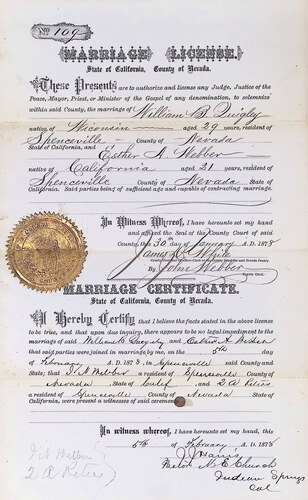 No 109
MARRIAGE LICENSE.
State of California, County of Nevada.
These Presents are to authorize and license any Judge, Justice of the
Peace, Mayor, Priest, or Minister of the Gospel of any denomination, to solemnize
within said County, the marriage of William B Quigley
native of Wisconsin aged 29 years, resident of
Spenceville County of Nevada
State of California, and Esther A Webber
native of California aged 21 years, resident of
Spenceville County of Nevada State of
California. Said parties being of sufficient age and capable of contracting marriage.
In Witness Whereof, I have hereunto set my hand
and affixed the Seal of the County Court of said
County, this 30 day of January A.D. 1878
James White
By John Webber
Deputy Clerk.
MARRIAGE CERTIFICATE.
State of California, County of Nevada.
I Hereby Certify that I believe the facts stated in the above license
to be true, and that upon due inquiry, there appears to be no legal impediment to the
marriage of said William B Quigley and
that said parties were joined in marriage by me, on the 5th day
of February A.D. 1878, in Spenceville said County and
State; that J A Webber a resident of Spenceville County of
Nevada State of and 2 A Peters
a resident of Spenceville County of Nevada State of
California, were present a witnesses of said ceremony.
In witness whereof, I have hereunto set my hand, this
5th of February A.D. 1878
J J Harris
Pastor M. E. Church
Indian Springs
Cal
J A Webber
2 A Peters